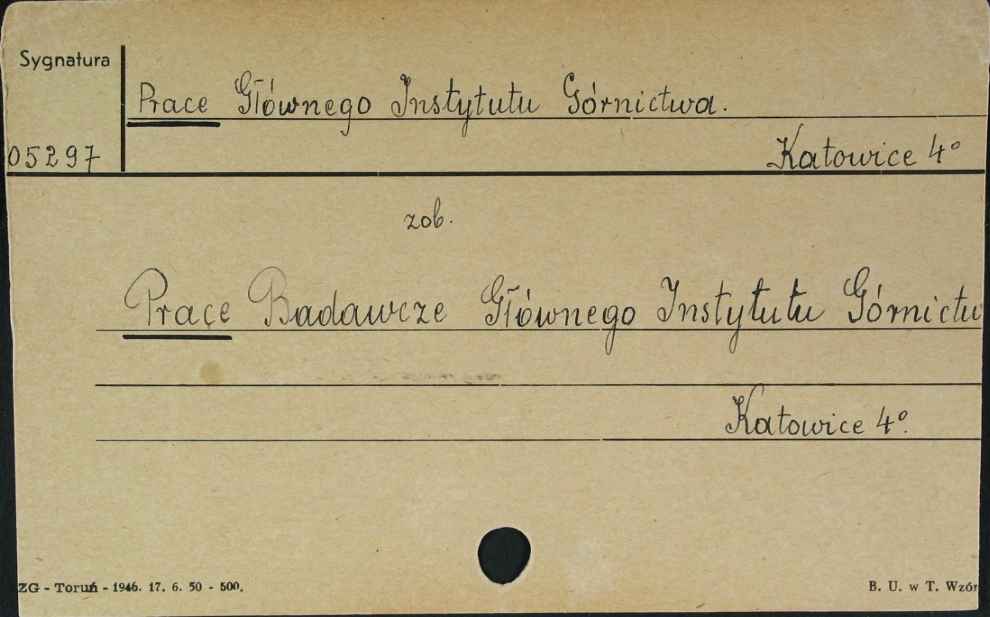 Sygnatura
Prace Głównego Instytutu Górnictwa.
05297
Katowice 4°
zob.
Prace Badawcze Głównego Instytutu Górnictw
Katowice 4°.
ZG - Toruń - 1946. 17. 6. 50 - 500.
B. U. w T. Wzór